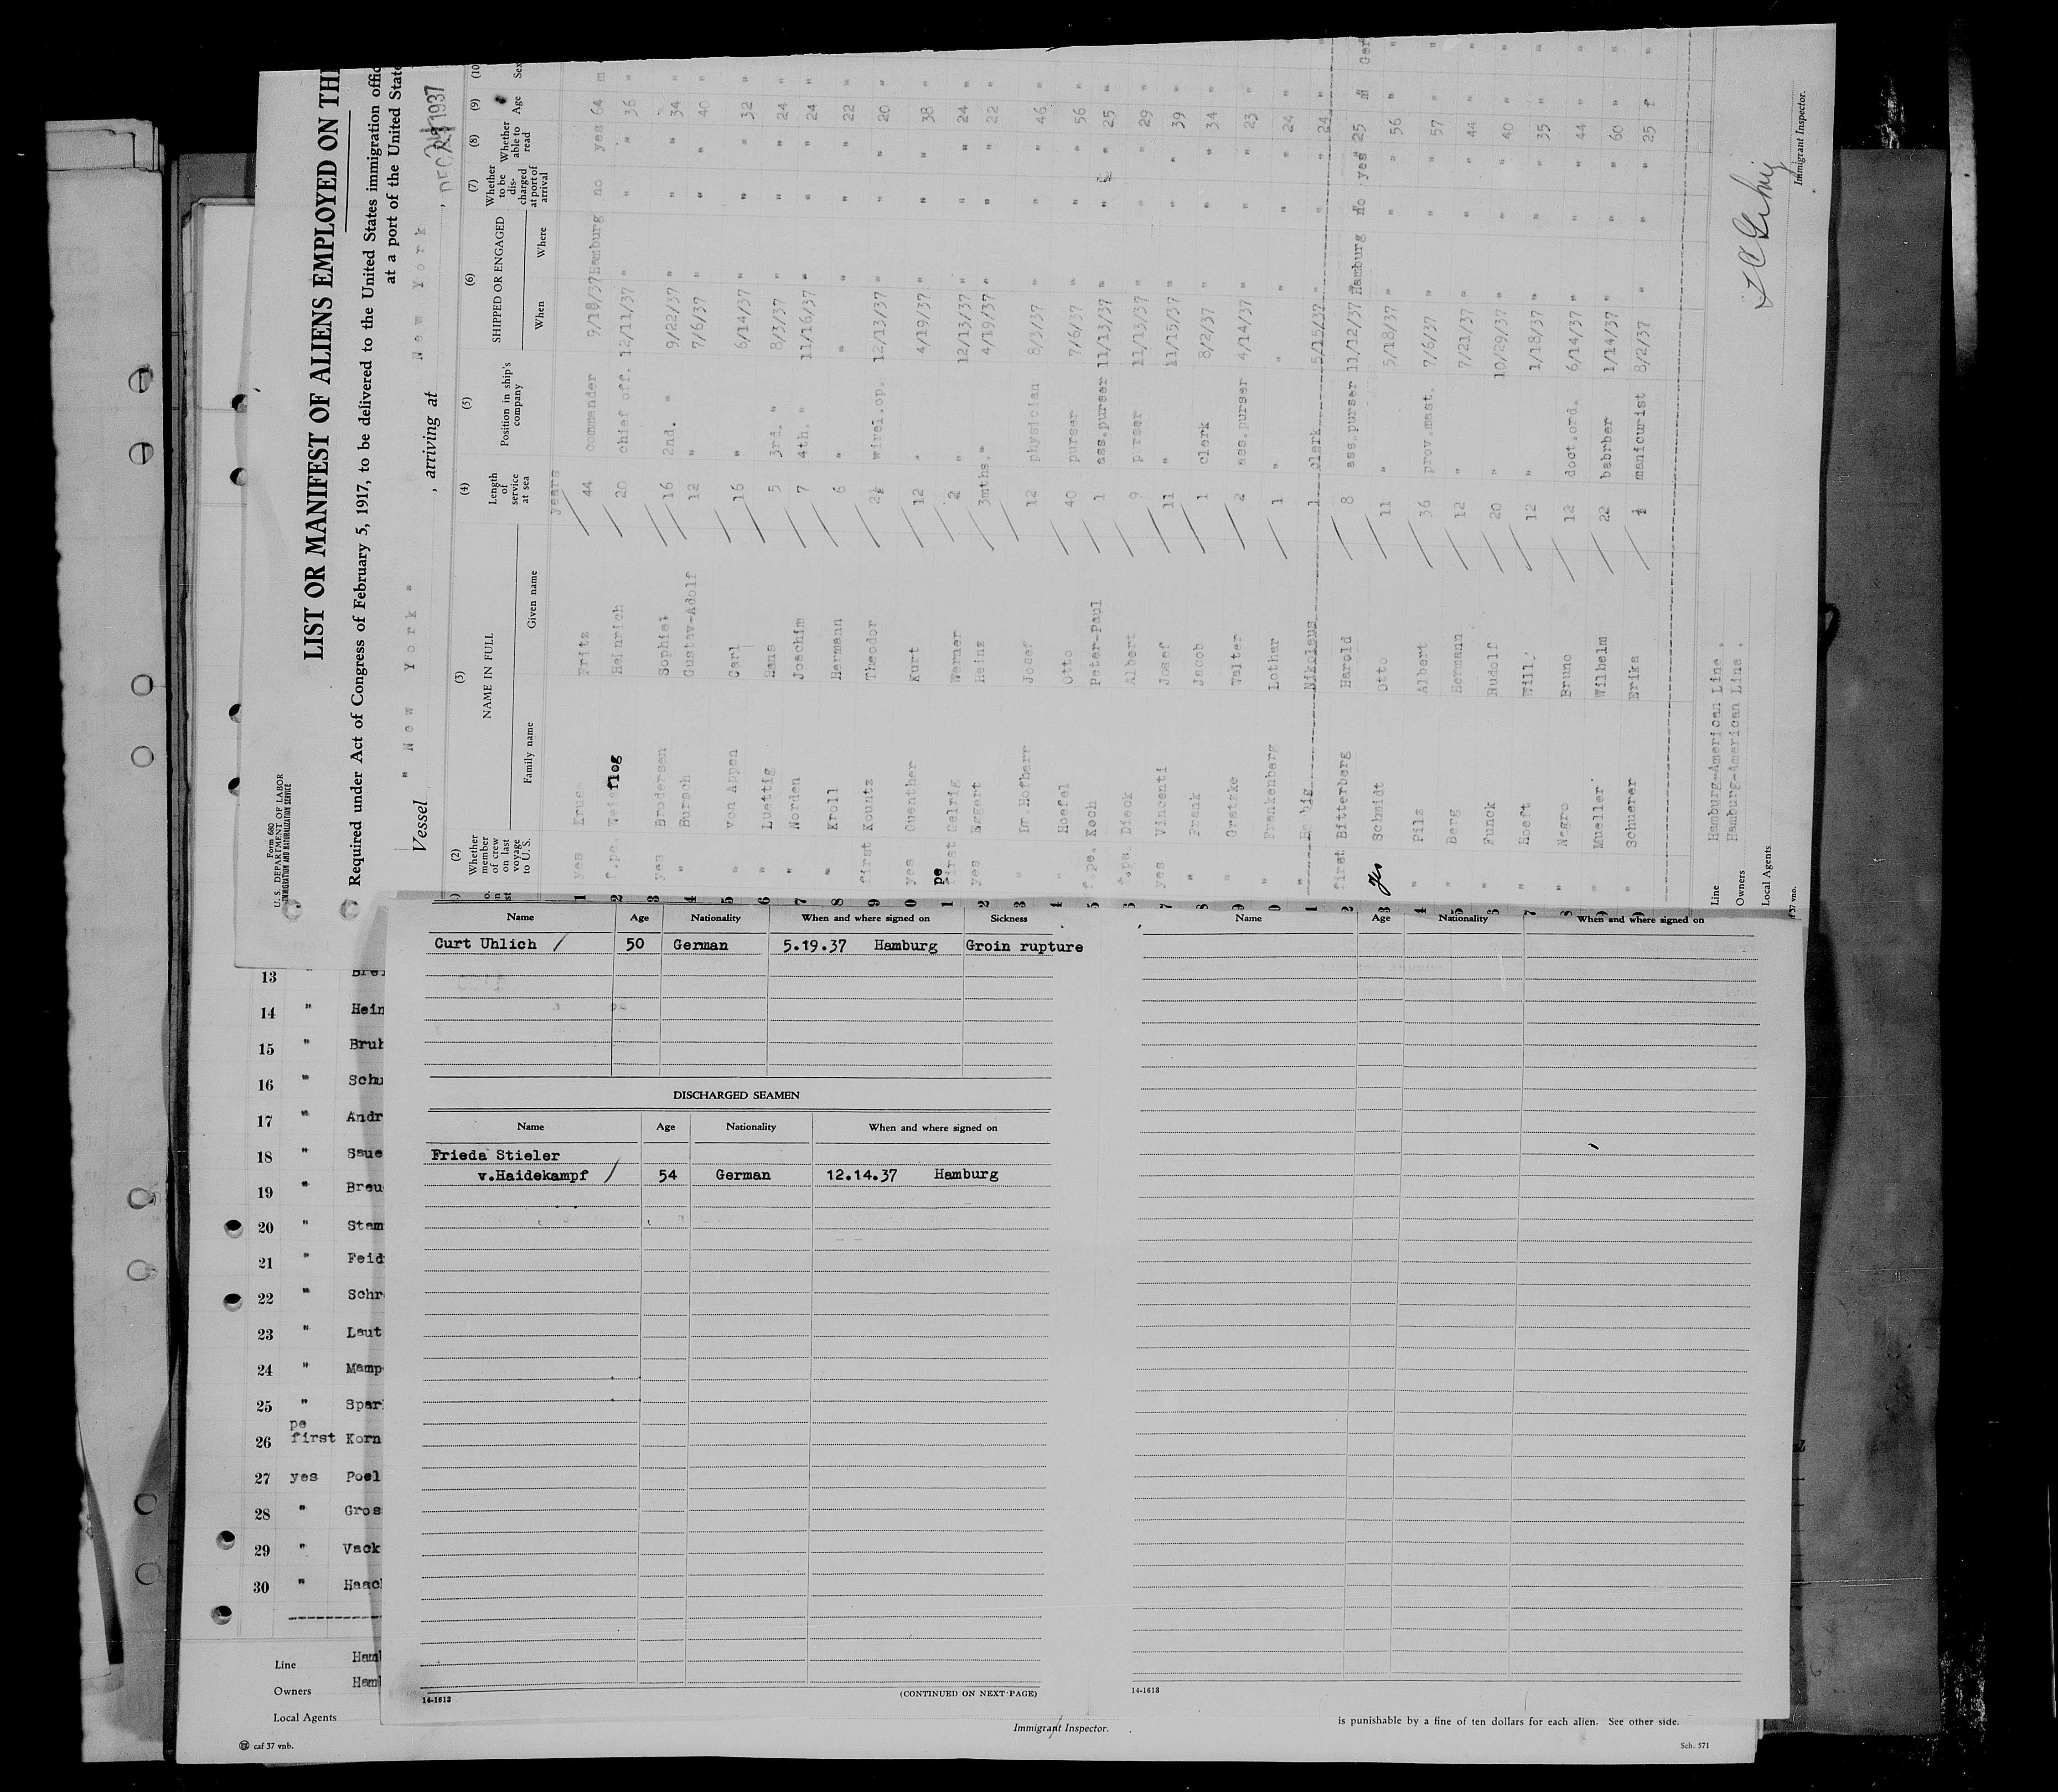 Form 680
U. S. DEPARTMENT OF LABOR
IMMIGRATION AND NATURALIZATION SERVICE
LIST OR MANIFEST OF ALIENS EMPLOYED ON
Required under Act of Congress of February 5, 1917, to be delivered to the United States immigration
at a port of the United
Vessel " New York " , arriving at New York , 1937
(2) (3) (4) (5) (6) (7) (8) (9) (10
Whether member of crew on last voyage to U. S. NAME IN FULL Length of service at sea Position in ship's company SHIPPED OR ENGAGED Whether to be discharged at port of arrival Whether able to read Age Sex
Family name Given name When Where
years
1 yes Fritz 44 commander 9/18/37 Hamburg no yes 64 m
2 Heinrich 20 chief off. 12/11/37 " " " 36 "
3 yes Brodersen 16 2nd. " 9/22/37 " " " 34 "
4 " Bursch Gustav-Adolf 12 " 7/6/37 " " " 40 "
5 " Von Appen Carl 16 " 6/14/37 " " " 32 "
6 " Luettig Hans 5 3rd. " 8/3/37 " " " 24 "
7 " Norden Joachim 7 4th. " 11/16/37 " " " 24 "
8 " Kroll Hermann 6 " " " " " 22 "
9 first Kountz Theodor 2½ wirel.op. 12/13/37 " " " 20 "
0 yes Guenther Kurt 12 " 4/19/37 " " " 38 "
1 pe first Werner 2 " 12/13/37 " " " 24 "
2 yes Eggert Heinz 3mths. " 4/19/37 " " " 22 "
3 " Dr. Hofherr Josef 12 physician 8/3/37 " " " 46 "
4 " Hoefel Otto 40 purser 7/6/37 " " " 56 "
5 f.pe. Koch Peter-Paul 1 ass.purser 11/13/37 " " " 25 "
Dieck Albert 9 purser 11/13/37 " " " 29 "
7 yes Vincenti Josef 11 " 11/15/37 " " " 39 "
8 " Frank Jacob 1 clerk 8/2/37 " " " 34 "
9 " Gratzke Walter 2 ass.purser 4/14/37 " " " 23 "
0 " Frankenberg Lothar 1 " " " " " 24 "
1 " Nikolaus 1 clerk 5/15/37 " " " 24 "
2 first Bitterberg Harold 8 ass.purser 11/12/37 Hamburg no yes 25 m Ger
3 yes Schmidt Otto 11 " 5/18/37 " " " 56 "
4 " Pilz Albert 36 prov.mast. 7/6/37 " " " 57 "
5 " Berg Hermann 12 " 7/21/37 " " " 44 "
Funck Rudolf 20 " 10/29/37 " " " 40 "
7 " Hoeft 12 " 1/18/37 " " " 35 "
8 " Negro Bruno 12 doct.ord. 6/14/37 " " " 44 "
" Mueller Wilhelm 22 babrber 1/14/37 " " " 60 "
" Schuerer Erika ½ manicurist 8/2/37 " " " 25 f
Line Hamburg-American Line .
Owners Hamburg-American Line .
Local Agents
Immigrant Inspector.
Name Age Nationality When and where signed on Sickness
Curt Uhlich / 50 German 5.19.37 Hamburg Groin rupture
DISCHARGED SEAMEN
Name Age Nationality When and where signed on
Frieda Stieler
v.Haidekampf / 54 German 12.14.37 Hamburg
14-1613
(CONTINUED ON NEXT PAGE)
Name Age Nationality When and where signed on
14-1613
13 "
14 " Hein
15 " Bruh
16 "
17 " Andr
18 " Saue
19 " Breu
20 " Stam
21 " Feid
22 " Schr
23 " Laut
24 " Mamp
25 " Spar
pe
26 first Korn
27 yes Poel
28 " Gros
29 " Vack
30 " Haac
Line Ham
Owners Ham
Local Agents
Immigrant Inspector.
is punishable by a fine of ten dollars for each alien. See other side.
caf 37 vnb.
Sch. 571